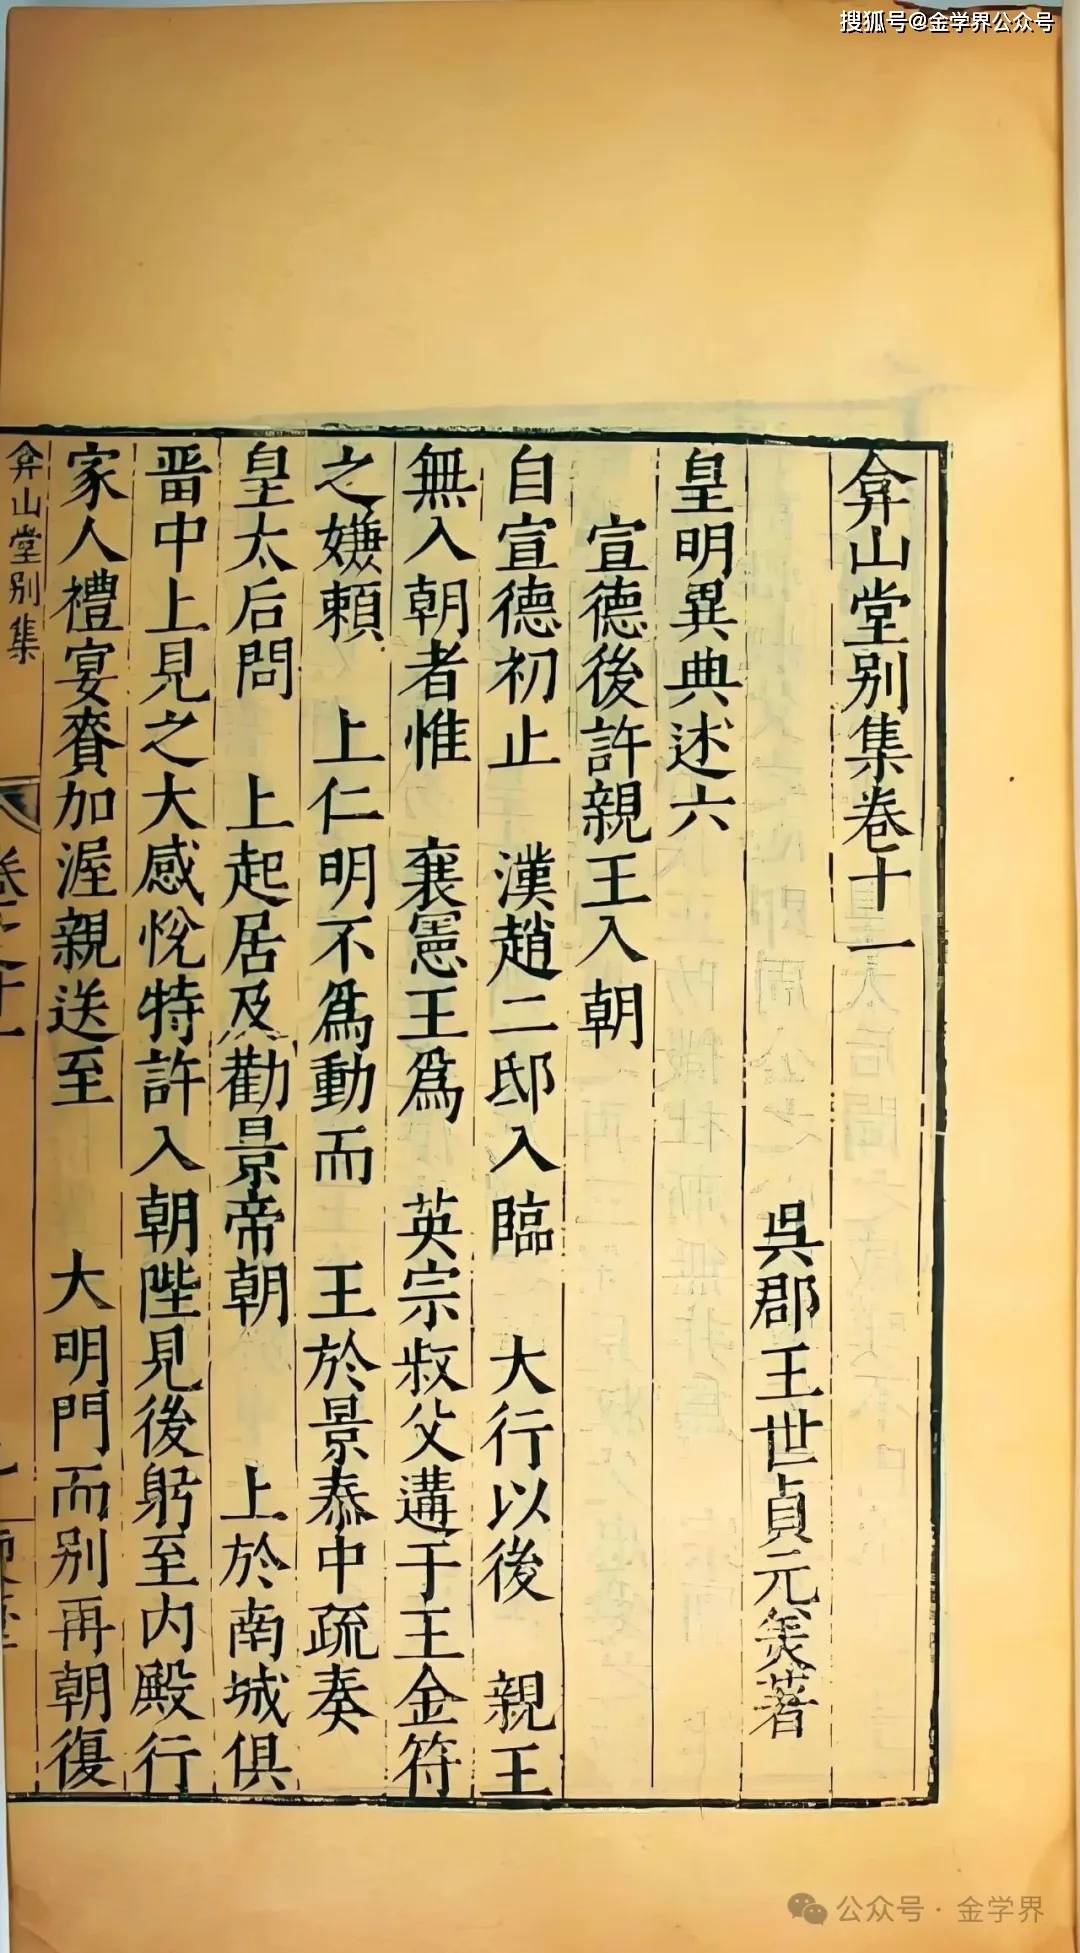 搜狐号@金学界公众号
弇山堂别集卷十一
吳郡王世貞元美著
皇明異典述六
宣德後許親王入朝
自宣德初止　漢趙二邸入臨　大行以後　親王
無入朝者惟　襄憲王爲　英宗叔父遘于王金符
之嫌賴　上仁明不爲動而　王於景泰中疏奏
皇太后問　上起居及勸景帝朝　上於南城俱
畱中上見之大感悅特許入朝陛見後躬至内殿行
家人禮宴賚加渥親送至　大明門而别再朝復
弇山堂别集
卷之十一
公众号·金学界